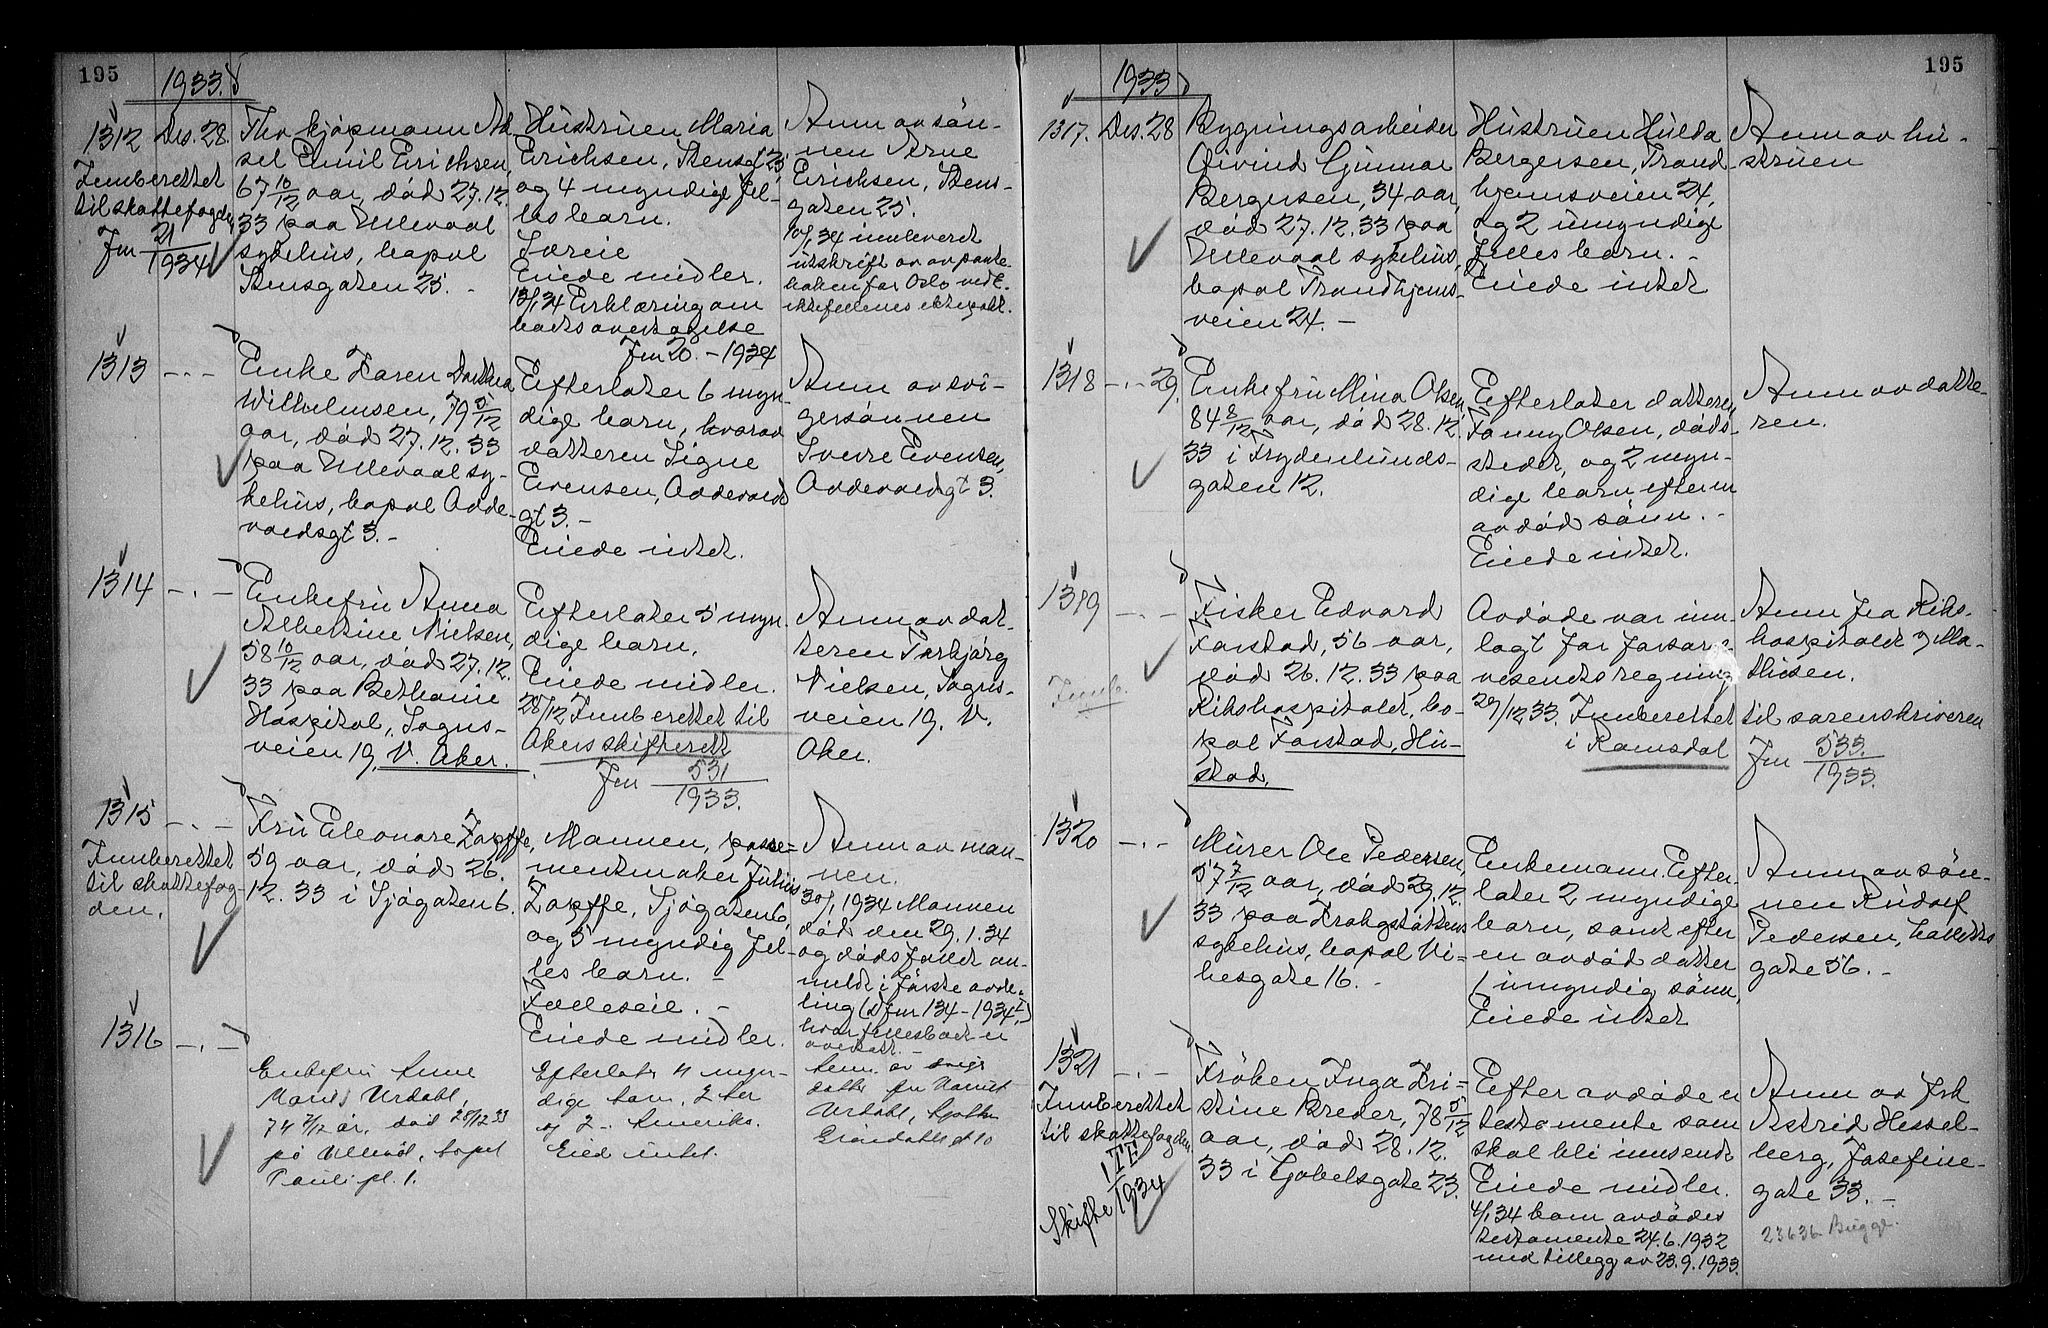 195
1933.
1312 Des. 28.
Innberettet
til skattefogden
Jnr 21/1934
Fhv kjøpmann Ak-
sel Emil Erichsen,
67 10/12 aar, død 27.12.
33 paa Ullevaal
sykehus, bopæl
Stensgaten 25. -
Hustruen Maria
Erichsen, Stensgt 25
og 4 myndige fel-
les barn.
Særeie
Eiede midler.
13/1 34 Erklæring om
boets overtagelse
Jnr 20. - 1934
Anm av søn-
nen Arne
Erichsen, Stens-
gaten 25.
10/1 34 innleveret
utskrift av
for Oslo ved
1313 - . -
Enke Karen Dorthea
Wilhelmsen, 79 5/12
aar, død 27.12.33
paa Ullevaal sy-
kehus, bopæl Odde-
voedsgt 3. -
Efterlater 6 myn-
dige barn, hvorav
datteren Signe
Evensen, Oddevoeds
gt 3. -
Eiede intet.
Anm av svi-
gersønnen
Sverre Evensen,
Oddevoedsgt 3.
1314 - . -
Enkefru Anna
Albertine Nielsen,
58 10/12 aar, død 27.12.
33 paa Bethanie
Hospital, Sogns-
veien 19, V. Aker.
Efterlater 5 myn-
dige barn.
Eiede midler.
28/12 Innberettet til
Akers skifterett
Jnr 531/1933.
Anm av dat-
teren Torbjørg
Nielsen, Sogns-
veien 19. V.
Aker.
1315 - . -
Innberettet
til skattefog-
den.
Fru Eleonore Zapffe,
59 aar, død 26.
12. 33 i Sjøgaten 6.
Mannen, posse-
mentmaker Julius
Zapffe, Sjøgaten 6,
og 5 myndig fel-
les barn. -
Felleseie. -
Eiede midler.
Anm av man-
nen.
30/1 1934 Mannen
død den 29.1.34
og dødsfallet an-
meldt i første avde-
ling (D jnr 134 - 1934 I)
hvor fellesboet er
overtatt. -
1316 - . -
Enkefru Anne
Marie Urdahl,
74 7/12 år, død 28/12 33
på Ullevål, bopel
Pauli pl. 1.
Efterlater 4 myn-
dige barn, 2 her
og 2 i Amerika.
Eied intet.
Anm. av sviger
datter fru
Urdahl,
195
1933
1317. Des. 28
Bygningsarbeider
Øivind Gunnar
Bergersen, 34 aar,
død 27.12.33 paa
Ullevaal sykehus,
bopæl Trondhjems-
veien 24. -
Hustruen Hulda
Bergersen, Trond-
hjemsveien 24,
og 2 umyndige
felles barn. -
Eiede intet
Anm av hu-
struen
1318 - . - 29.
Enkefru Mina Olsen
84 8/12 aar, død 28.12.
33 i Frydenlunds-
gaten 12.
Efterlater datteren
Fanny Olsen, døds-
stedet, og 2 myn-
dige barn efter en
avdød sønn. -
Eiede intet.
Anm av datte-
ren.
1319 - . -
Innb.
Fisker Edvard
Farstad, 56 aar,
død 26.12.33 paa
Rikshospitalet, bo-
pæl Farstad, Hu-
stad.
Avdøde var inn-
lagt for forsørge-
vesenets regning
29/12 33. Innberettet
i Romsdal
Anm fra Riks-
hospitalet v/ Ma-
thisen.
til sorenskriveren
Jnr 533./1933.
1320 - . -
Murer Ole Pedersen,
57 7/12 aar, død 29.12.
33 paa Krohgstøttens
sykehus, bopæl Vi-
besgate 16. -
Enkemann. Efter-
later 2 myndige
barn, samt efter
en avdød datter
1 umyndig sønn,
Eiede intet
Anm av søn-
nen Rudolf
Pedersen,
gate 56. -
1321 - . -
Innberettet
til skattefogden
Skifte 1 TE/1934
Frøken Inga Kri-
stine Breder, 78 5/12
aar, død 28.12.
33 i Gjøbelsgate 23.
Efter avdøde er
testamente som
skal bli innsendt
Eiede midler.
4/1 34 kom avdødes
testamente 24.6.1932
med tillegg av 23.9.1933.
Anm av frk
Astrid Hessel-
berg, Josefine-
gate 33. -
23636 Bugge.